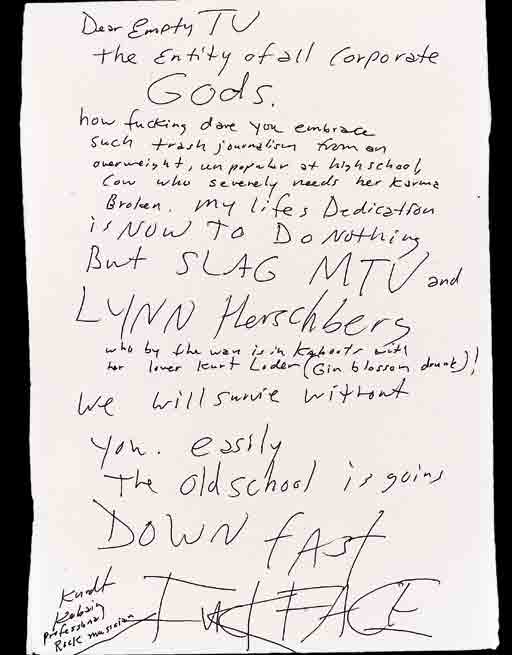 Dear Empty TV
the Entity of all Corporate
Gods.
how fucking dare you embrace
such trash journalism from an
overweight, unpopular at highschool
Cow who severely needs her Karma
Broken. My lifes Dedication
is NOW TO Do Nothing
But SLAG MTV and
LYNN Herschberg
who by the way is in Kahoots with
her lover Kurt Loder (Gin blossom drunk)!
We will survie without
you. easily
The oldschool is going
DOWN fAST
Kurdt
Kobain
professional
Rock musician
FuckFACE